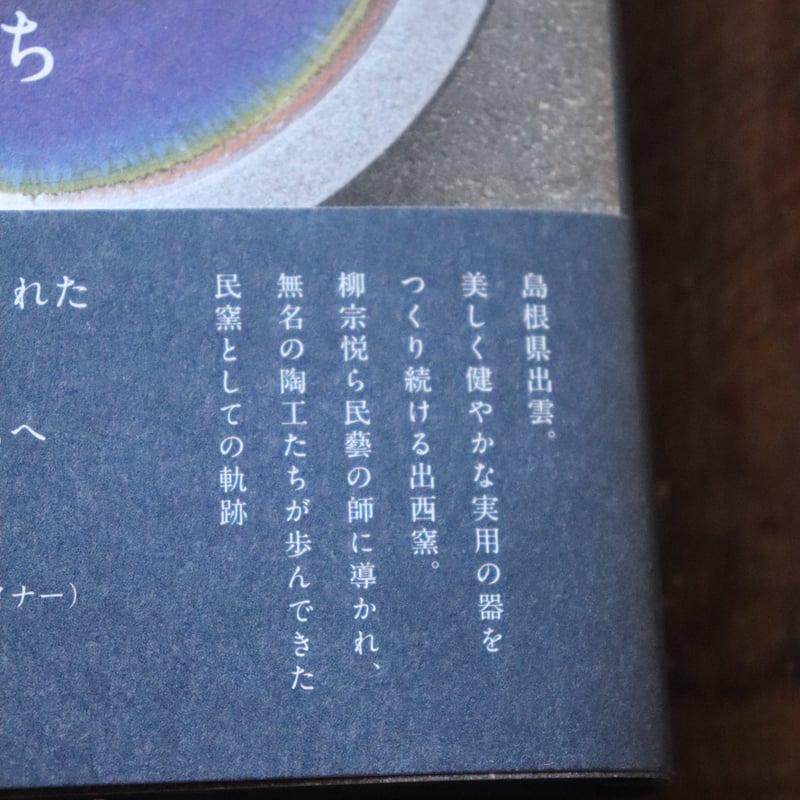 ち
島根県出雲。
美しく健やかな実用の器を
つくり続ける出西窯。
柳宗悦ら民藝の師に導かれ、
無名の陶工たちが歩んできた
民窯としての軌跡
れた
へ
ナー）